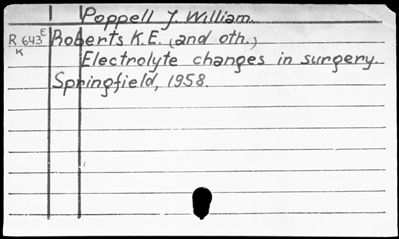 Poppell J. William.
R 643 E K Roberts K.E. (and oth.)
Electrolyte changes in surgery.
Springfield, 1958.